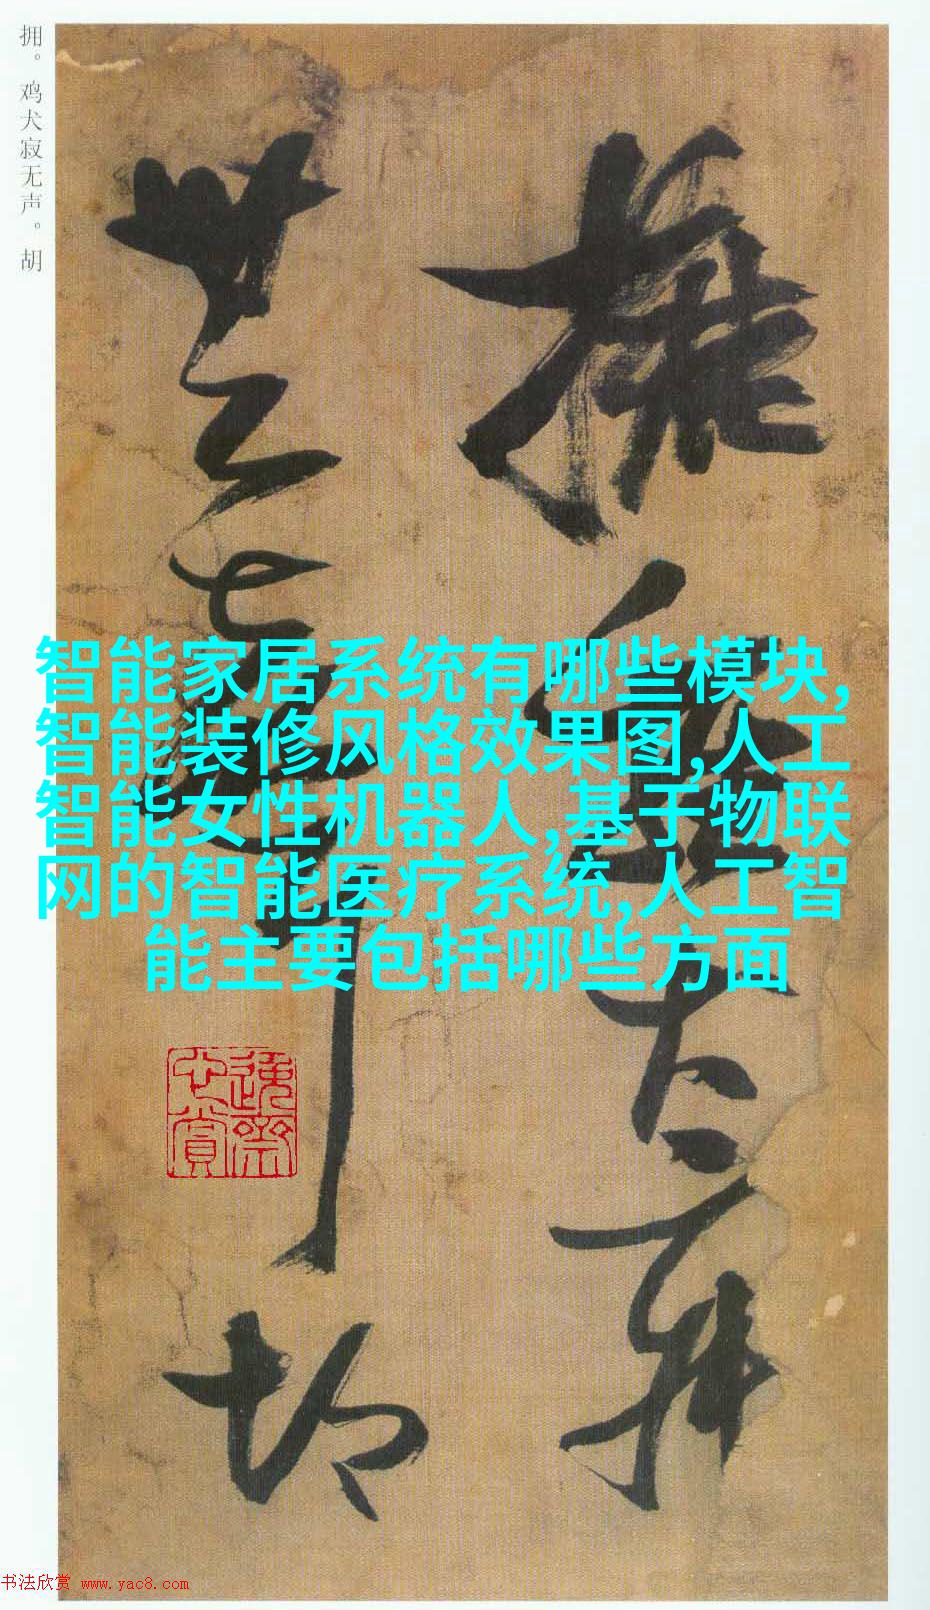 拥。鸡犬寂无声。胡
拥鸡犬寂
无声胡
智能家居系统有哪些模块,
智能装修风格效果图,人工
智能女性机器人,基于物联
网的智能医疗系统,人工智
能主要包括哪些方面
书法欣赏 www.yac8.com